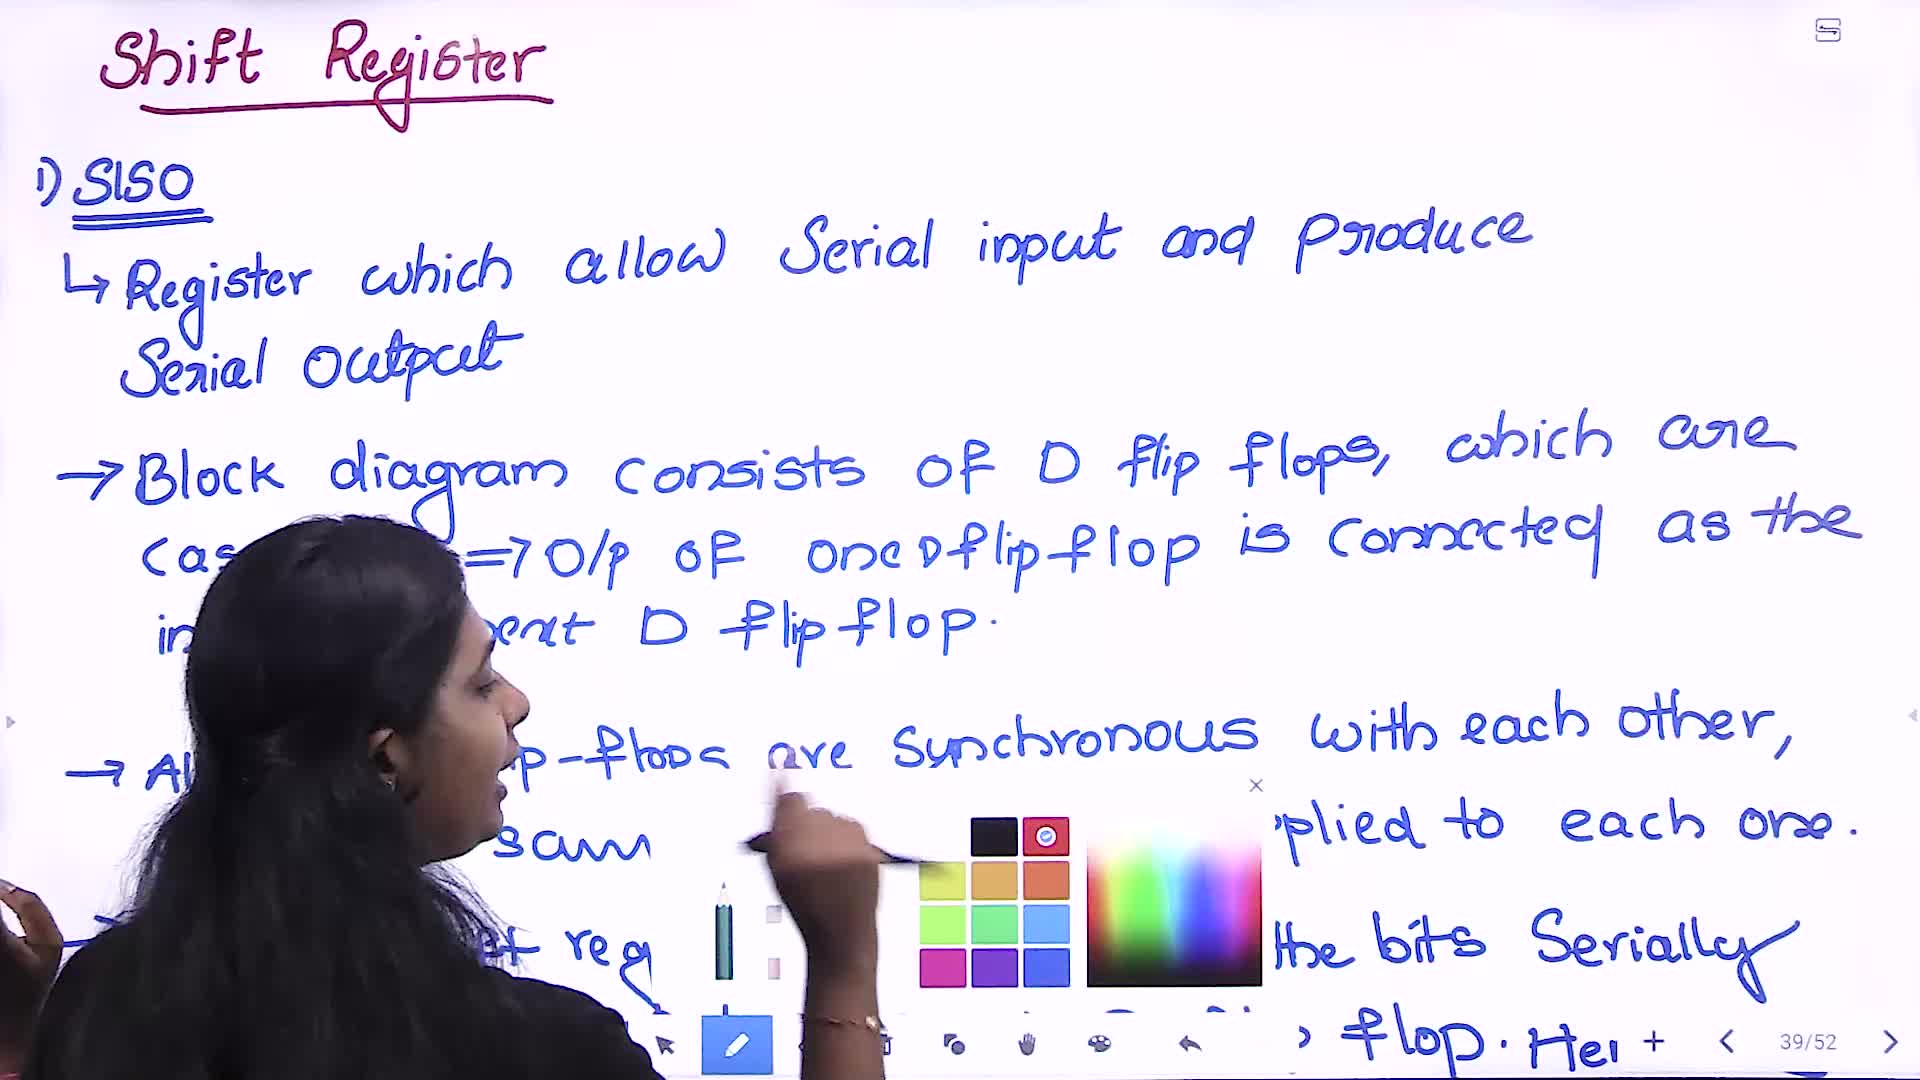 Shift Register
1) SISO
↳ Register which allow Serial input and produce
Serial output
→ Block diagram consists of D flip flops, which are
=> O/p of one D flip flop is connected as the
next D flip flop.
→ are synchronous with each other,
to each one.
the bits Serially
flop.
39/52